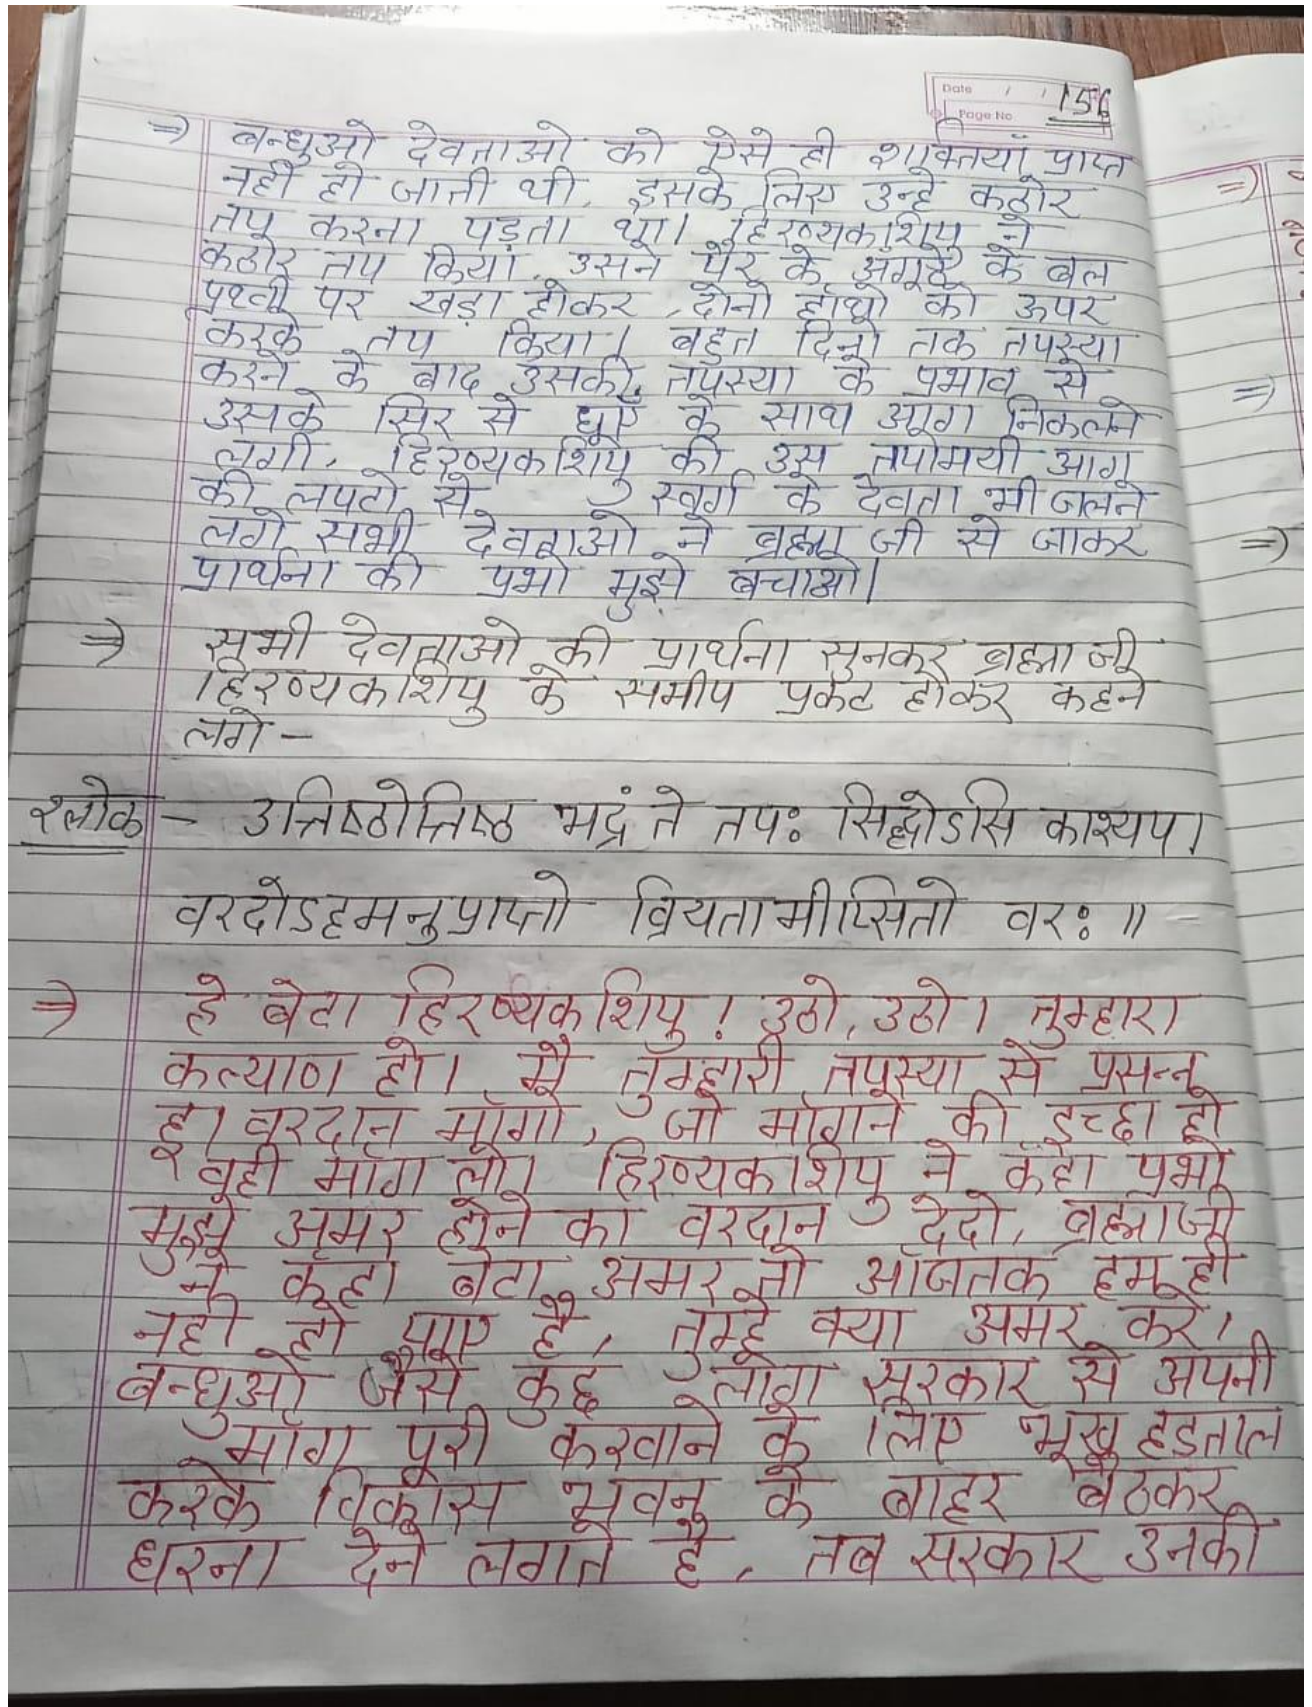 Date / / 156
Page No
⇒ बन्धुओ देवताओ को ऐसे ही शक्तियाँ प्राप्त
नही हो जाती थी, इसके लिए उन्हे कठोर
तप करना पड़ता था। हिरण्यकशिपु ने
कठोर तप किया, उसने पैर के अंगूठे के बल
पृथ्वी पर खड़ा होकर, दोनो हाँथो को ऊपर
करके तप किया। बहुत दिनो तक तपस्या
करने के बाद उसकी तपस्या के प्रभाव से
उसके सिर से धुएँ के साथ आग निकलने
लगी, हिरण्यकशिपु की उस तपोमयी आग
की लपटो से स्वर्ग के देवता भी जलने
लगे सभी देवताओ ने ब्रह्मा जी से जाकर
प्रार्थना की प्रभो मुझे बचाओ।
⇒ सभी देवताओ की प्रार्थना सुनकर ब्रह्मा जी
हिरण्यकशिपु के समीप प्रकट होकर कहने
लगे –
श्लोक – उत्तिष्ठोत्तिष्ठ भद्रं ते तपः सिद्धोऽसि काश्यप।
वरदोऽहमनुप्राप्तो व्रियतामीप्सितो वरः॥
⇒ हे बेटा हिरण्यकशिपु! उठो, उठो। तुम्हारा
कल्याण हो। मै तुम्हारी तपस्या से प्रसन्न
हू। वरदान माँगो, जो माँगने की इच्छा हो
वही माँग लो। हिरण्यकशिपु ने कहा प्रभो
मुझे अमर होने का वरदान देदो, ब्रह्माजी
ने कहा बेटा अमर तो आजतक हम ही
नही हो पाए है, तुम्हे क्या अमर करे।
बन्धुओ जैसे कुछ लोग सरकार से अपनी
माँग पूरी करवाने के लिए भूख हडताल
करके विकास भवन के बाहर बैठकर
धरना देने लगते है, तब सरकार उनकी